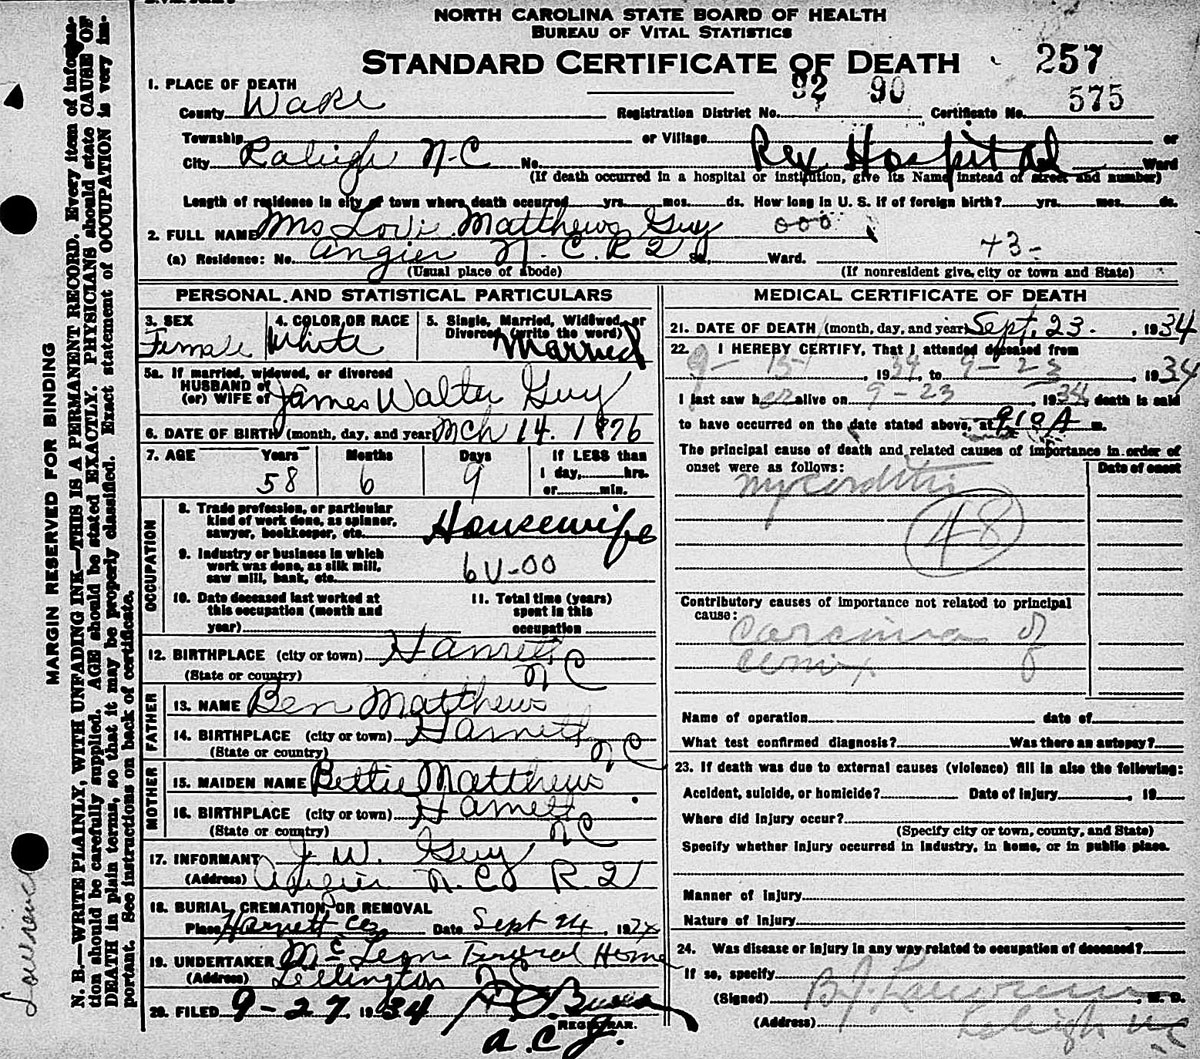 NORTH CAROLINA STATE BOARD OF HEALTH
BUREAU OF VITAL STATISTICS
STANDARD CERTIFICATE OF DEATH
257
1. PLACE OF DEATH
92 90
575
County Wake Registration District No. Certificate No.
Township or Village or
City Raleigh N-C No. Rex Hospital Ward
(If death occurred in a hospital or institution, give its Name instead of street and number)
Length of residence in city or town where death occurred yrs. mos. ds. How long in U. S. if of foreign birth? yrs. mos. ds.
2. FULL NAME Mrs Lovi Matthews Guy 000
(a) Residence: No. Angier N. C. R 2 St., Ward. 43-
(Usual place of abode) (If nonresident give city or town and State)
PERSONAL AND STATISTICAL PARTICULARS
3. SEX Female
4. COLOR OR RACE White
5. Single, Married, Widowed, or Divorced (write the word) Married
5a. If married, widowed, or divorced
HUSBAND of
(or) WIFE of James Walter Guy
6. DATE OF BIRTH (month, day, and year) Mch 14. 1876
7. AGE Years Months Days If LESS than
58 6 9 1 day, hrs.
or min.
OCCUPATION
8. Trade profession, or particular
kind of work done, as spinner,
sawyer, bookkeeper, etc. Housewife
9. Industry or business in which
work was done, as silk mill,
saw mill, bank, etc. 6V-00
10. Date deceased last worked at
this occupation (month and
year)
11. Total time (years)
spent in this
occupation
12. BIRTHPLACE (city or town) Harnett
(State or country) N C
FATHER
13. NAME Ben Matthews
14. BIRTHPLACE (city or town) Harnett
(State or country) N C
MOTHER
15. MAIDEN NAME Bettie Matthews
16. BIRTHPLACE (city or town) Harnett
(State or country) N C
17. INFORMANT J. W. Guy
(Address) Angier N. C. R. 2
18. BURIAL, CREMATION OR REMOVAL
Place Harnett Co Date Sept 24, 19
19. UNDERTAKER McLean Funeral Home
(Address) Lillington N C
20. FILED 9-27, 1934
REGISTRAR.
A. C. J.
MEDICAL CERTIFICATE OF DEATH
21. DATE OF DEATH (month, day, and year) Sept. 23. , 1934
22. I HEREBY CERTIFY, That I attended deceased from
9-15-, 1934, to 9-23, 1934
I last saw her alive on 9-23 1934, death is said
to have occurred on the date stated above, at 910 A m.
The principal cause of death and related causes of importance in order of
onset were as follows: Date of onset
myocarditis
48
Contributory causes of importance not related to principal
cause:
Carcinoma of
Cervix
Name of operation date of
What test confirmed diagnosis? Was there an autopsy?
23. If death was due to external causes (violence) fill in also the following:
Accident, suicide, or homicide? Date of injury , 19
Where did injury occur?
(Specify city or town, county, and State)
Specify whether injury occurred in industry, in home, or in public place.
Manner of injury
Nature of injury
24. Was disease or injury in any way related to occupation of deceased?
If so, specify
(Signed) B. J. Lawrence, M. D.
(Address) Raleigh NC
MARGIN RESERVED FOR BINDING
N. B.—WRITE PLAINLY, WITH UNFADING INK—THIS IS A PERMANENT RECORD. Every item of information
should be carefully supplied. AGE should be stated EXACTLY. PHYSICIANS should state CAUSE OF
DEATH in plain terms, so that it may be properly classified. Exact statement of OCCUPATION is very im-
portant. See instructions on back of certificate.
Lawrence